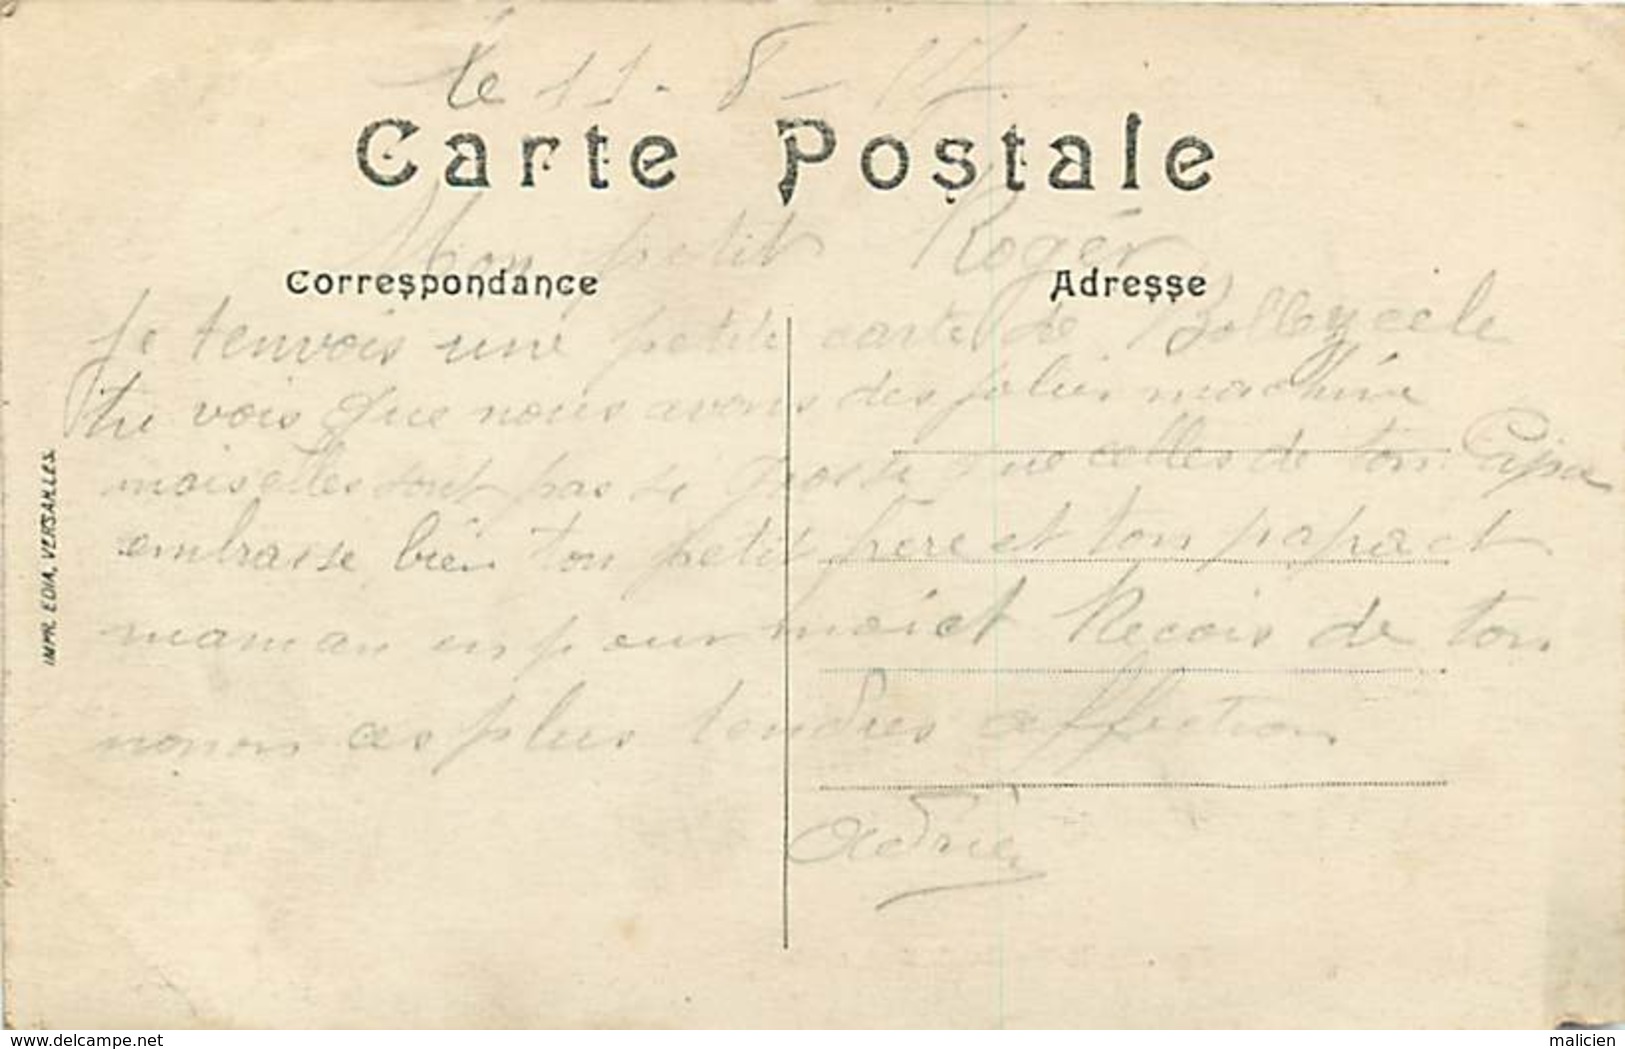 le 11-8-17
Carte Postale
Mon petit Roger
Correspondance
Adresse
Je t'envois une petite carte de
tu vois que nous avons des jolies machine
mais elles sont pas si grosse que celles de ton Papa
embrasse bien ton petit frère et ton papa et
maman en pour moi et Recois de ton
nonon ces plus tendres affection
IMPR. EDIA, VERSAILLES.
www.delcampe.net
malicien